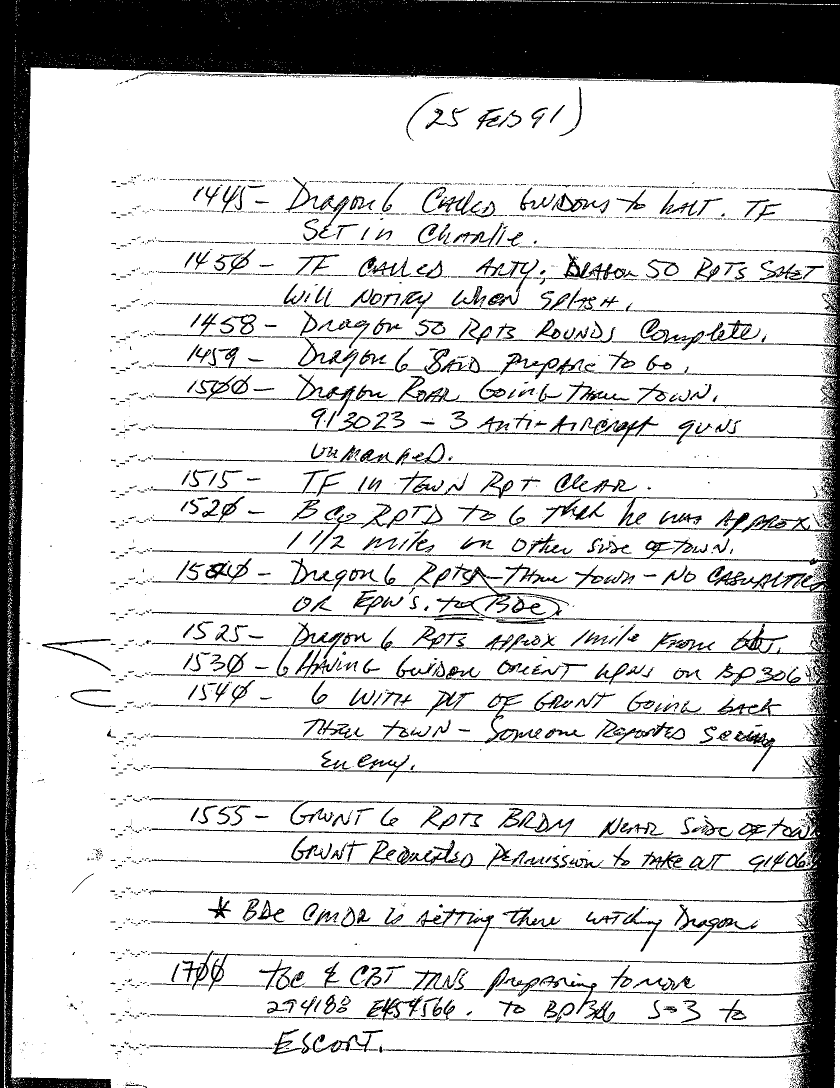 (25 FEB 91)
1445 - Dragon 6 Called Guidons to halt. TF
SET in Charlie.
145Ø - TF CALLED ARTY; Dragon 50 RPTS SHOT
Will NOTIFY When SPLASH.
1458 - Dragon 50 Rpts ROUNDS Complete.
1459 - Dragon 6 SAID Prepare to Go.
15ØØ - Dragon ROAR Going Thru TOWN.
913023 - 3 Anti-Aircraft guns
unmanned.
1515 - TF in TOWN Rpt Clear.
152Ø - B Co RPTD to 6 that he was Approx
1 1/2 miles on other side of town.
Dragon 6 Rpts - Thru town - NO CASUALTIES
OR EPW's. to BDE.
1525 - Dragon 6 Rpts Approx 1 mile From
153Ø - 6 HAVING Guidon ORIENT WPNS on BP 306
154Ø - 6 WITH PLT OF GRUNT Going back
THRU town - Someone Reported seeing
Enemy.
1555 - GRUNT 6 Rpts BRDM NEAR Side OF TOWN
GRUNT Requested Permission to TAKE OUT 91406
* BDE CMDR is sitting there watching Dragon.
17ØØ TOC & CBT TRNS preparing to move
294188 to BP 306 S-3 to
ESCORT.